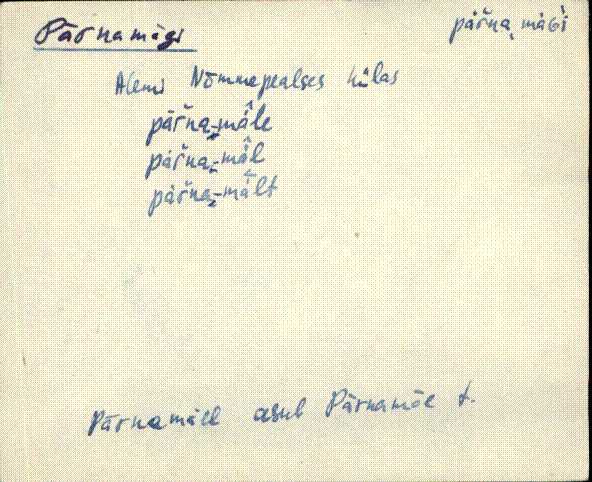 Pärnamägi
pär̆na mäGi
Nõmmepealses külas
pär̆na-mäl̂e
pär̆na-mäl̂
pär̆na-mäl̂t
Pärnamäel asub Pärnamäe t.